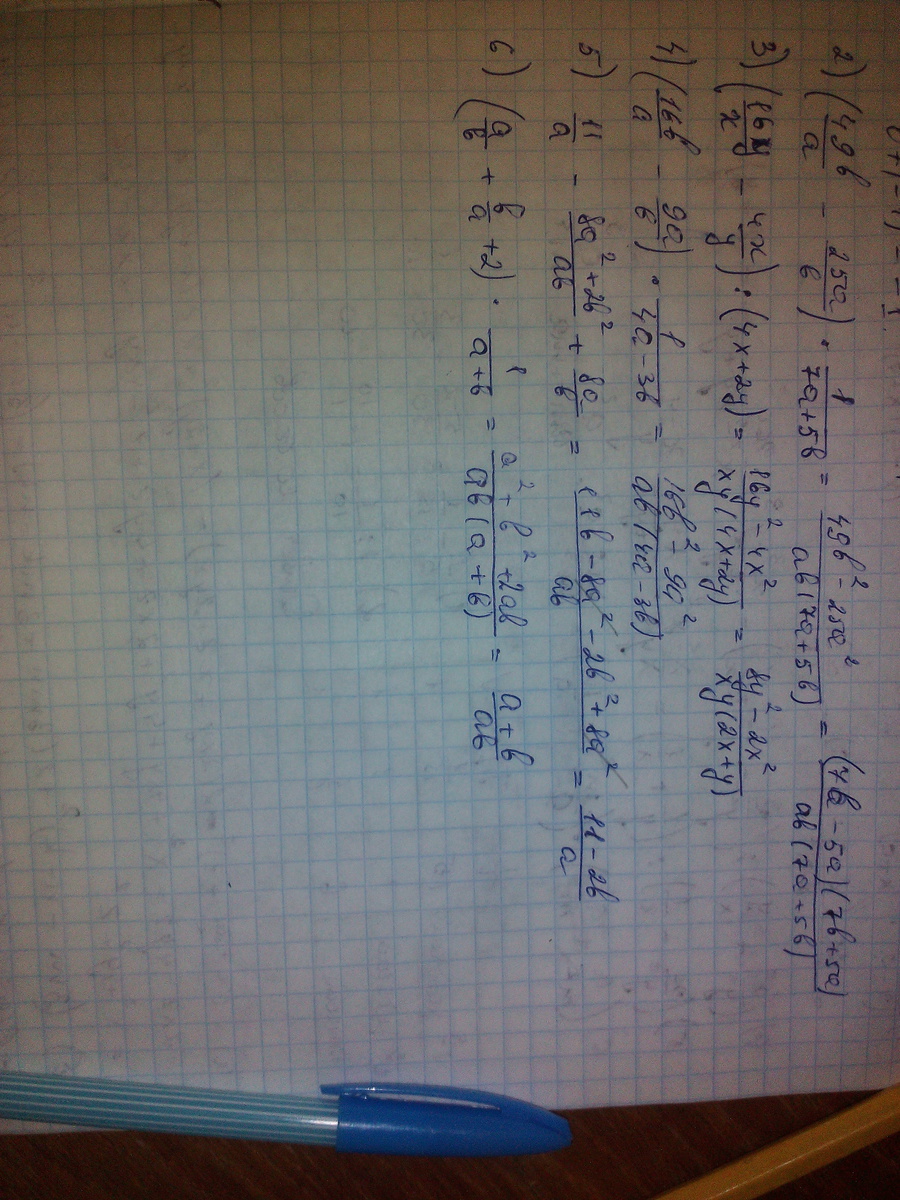 2) (49b/a - 25a/b) · 1/(7a+5b) = (49b² - 25a²)/(ab(7a+5b)) = ((7b - 5a)(7b+5a))/(ab(7a+5b))
3) (16y/x - 4x/y) : (4x+2y) = (16y² - 4x²)/(xy(4x+2y)) = (8y² - 2x²)/(xy(2x+y))
4) (16b/a - 9a/b) · 1/(4a-3b) = (16b² - 9a²)/(ab(4a-3b))
5) 11/a - (8a²+2b²)/(ab) + 8a/b = (11b - 8a² - 2b² + 8a²)/(ab) = (11-2b)/a
6) (a/b + b/a + 2) · 1/(a+b) = (a² + b² + 2ab)/(ab(a+b)) = (a+b)/(ab)